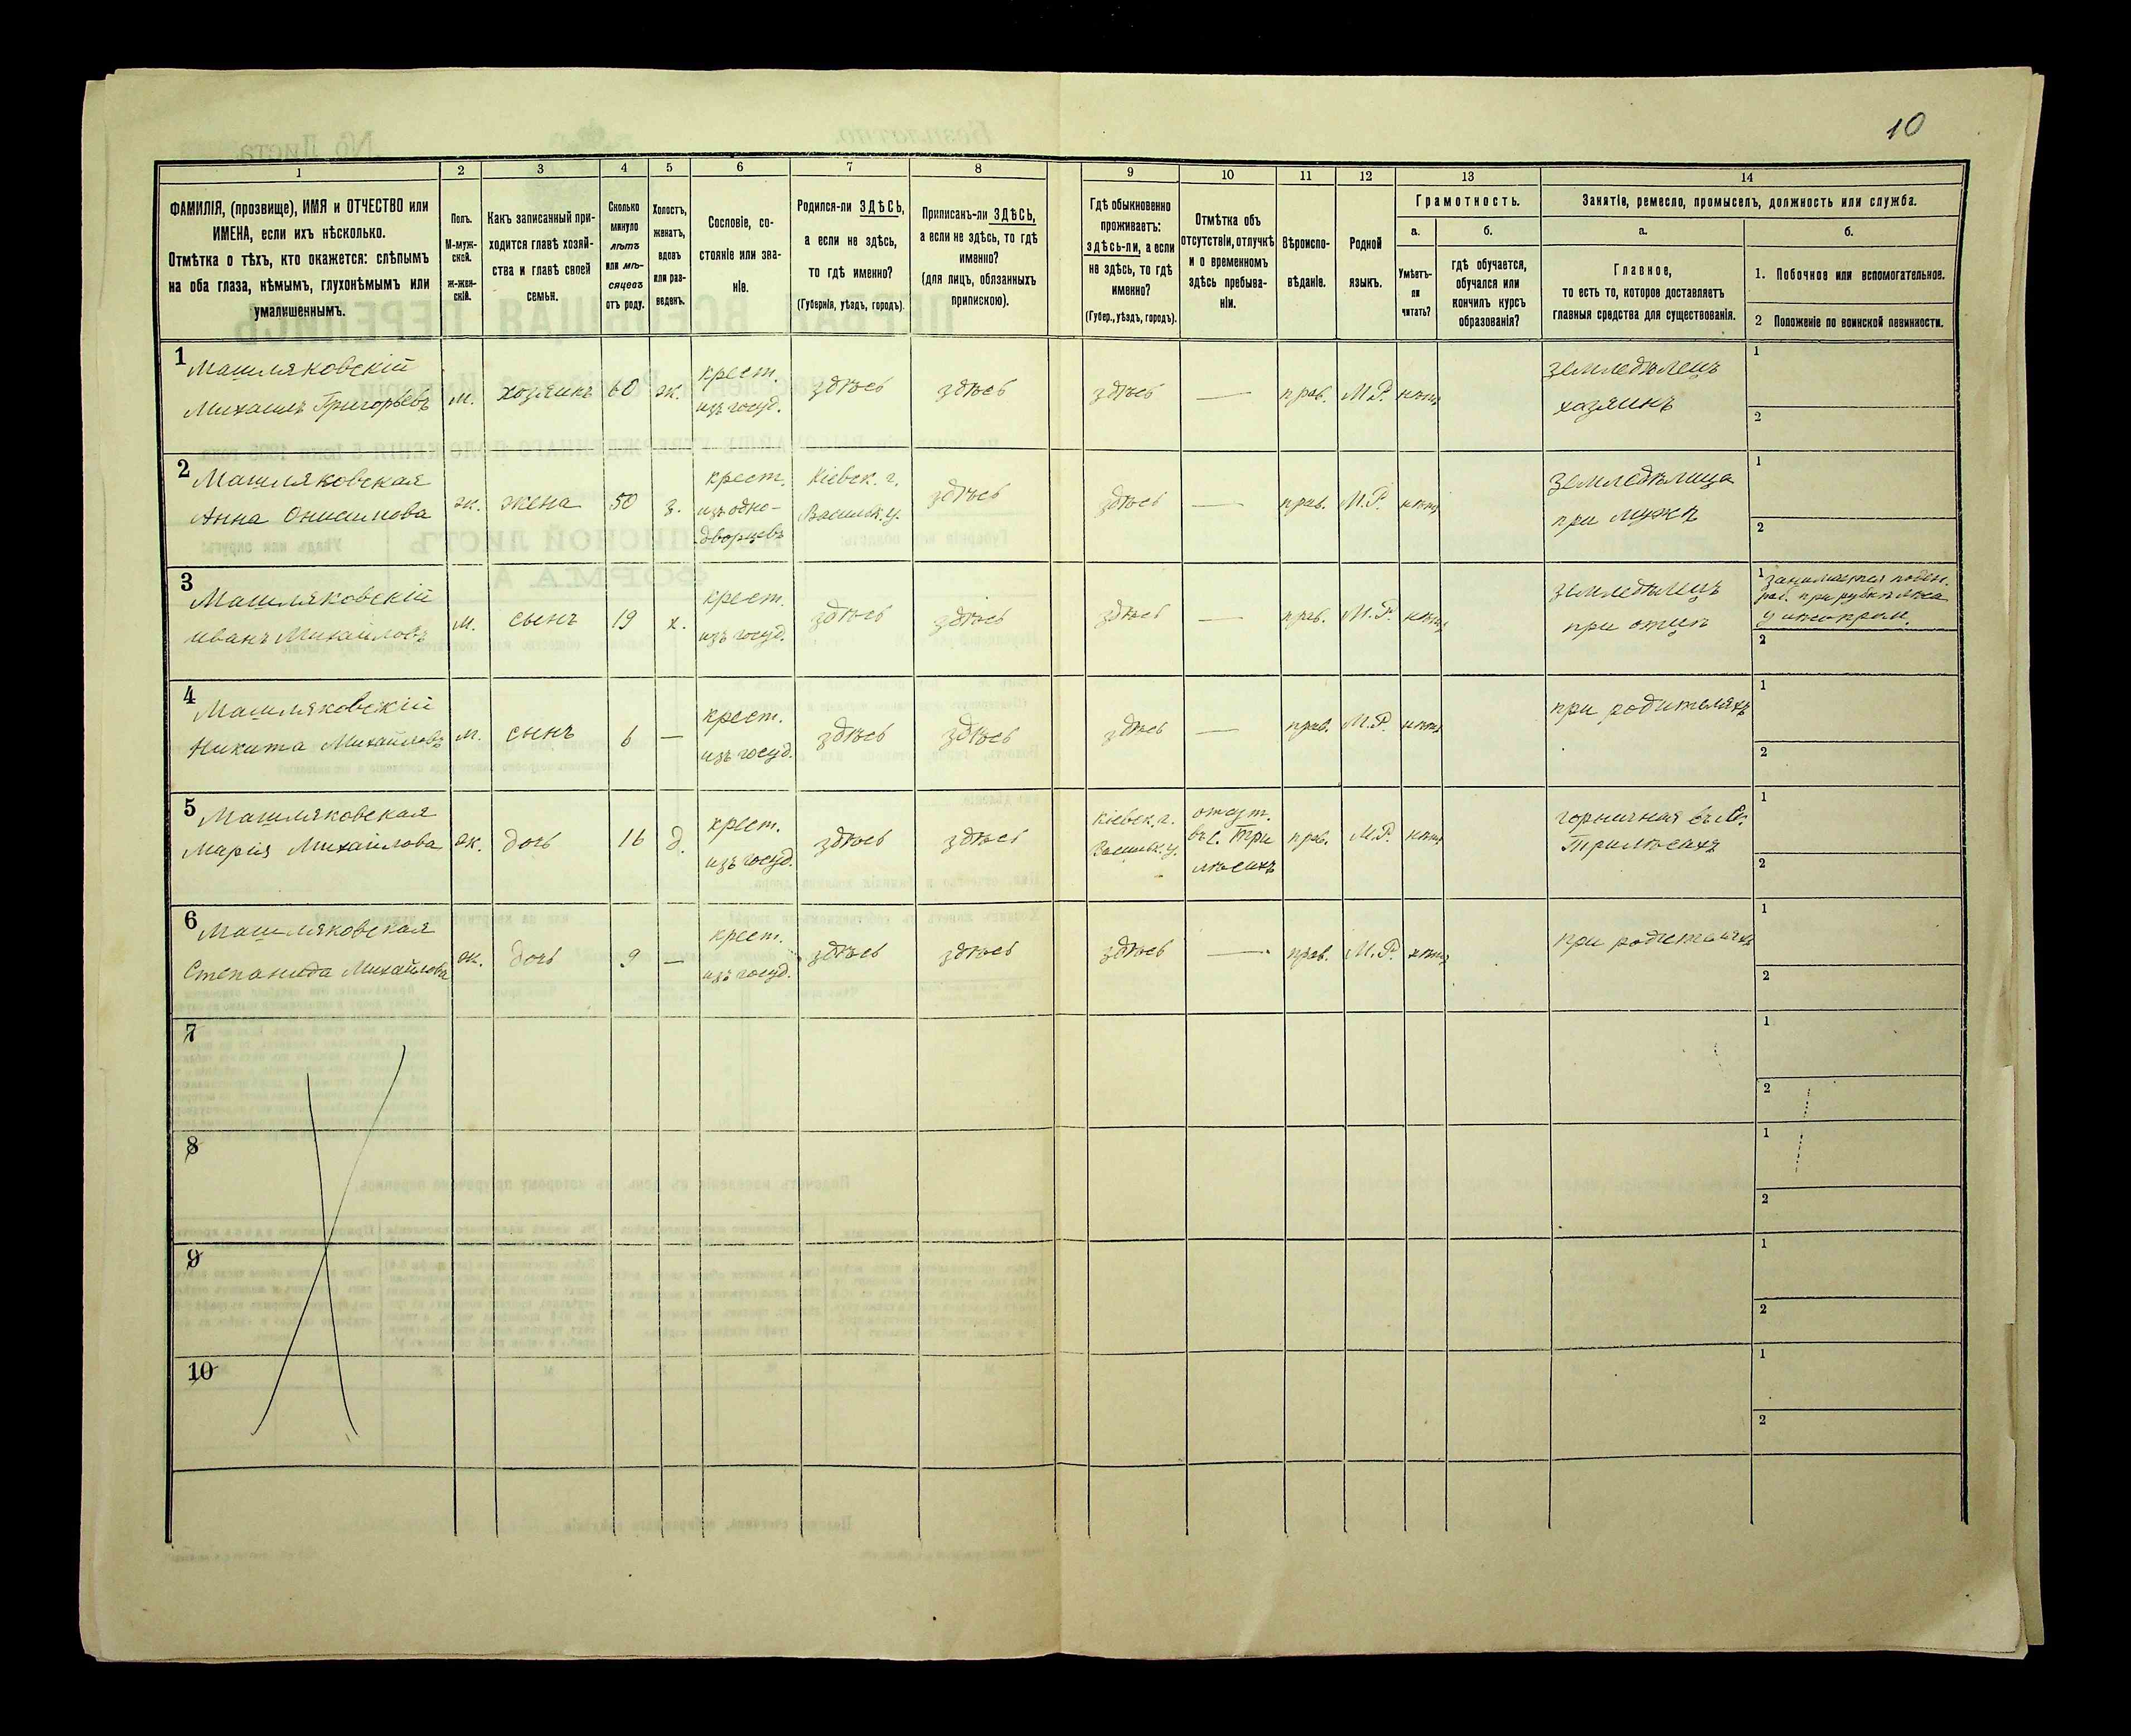 10
1 2 3 4 5 6 7 8 9 10 11 12 13 14
ФАМИЛІЯ, (прозвище), ИМЯ и ОТЧЕСТВО или
ИМЕНА, если ихъ нѣсколько.
Отмѣтка о тѣхъ, кто окажется: слѣпымъ
на оба глаза, нѣмымъ, глухонѣмымъ или
умалишеннымъ.
Полъ.
М-муж-
ской.
ж-жен-
скій.
Какъ записанный при-
ходится главѣ хозяй-
ства и главѣ своей
семьи.
Сколько
минуло
лѣтъ
или мѣ-
сяцевъ
отъ роду.
Холостъ,
женатъ,
вдовъ
или раз-
веденъ.
Сословіе, со-
стояніе или зва-
ніе.
Родился-ли ЗДѢСЬ,
а если не здѣсь,
то гдѣ именно?
(Губернія, уѣздъ, городъ).
Приписанъ-ли ЗДѢСЬ,
а если не здѣсь, то гдѣ
именно?
(для лицъ, обязанныхъ
припискою).
Гдѣ обыкновенно
проживаетъ:
здѣсь-ли, а если
не здѣсь, то гдѣ
именно?
(Губер., уѣздъ, городъ).
Отмѣтка объ
отсутствіи, отлучкѣ
и о временномъ
здѣсь пребыва-
ніи.
Вѣроиспо-
вѣданіе.
Родной
языкъ.
Грамотность.
а.
Умѣетъ-
ли
читать?
б.
гдѣ обучается,
обучался или
кончилъ курсъ
образованія?
Занятіе, ремесло, промыселъ, должность или служба.
а.
Главное,
то есть то, которое доставляетъ
главныя средства для существованія.
б.
1. Побочное или вспомогательное.
2 Положеніе по воинской повинности.
1
Машляковскій
Михаилъ Григорьевъ
м.
хозяинъ
60
ж.
крест.
изъ госуд.
здѣсь
здѣсь
здѣсь
—
прав.
М.Р.
нѣтъ
земледѣлецъ
хозяинъ
1
2
2
Машляковская
Анна Онисимова
ж.
жена
50
з.
крест.
изъ одно-
дворцевъ
Кіевск. г.
Васильк. у.
здѣсь
здѣсь
—
прав.
М.Р.
нѣтъ
земледѣлица
при мужѣ
1
2
3
Машляковскій
Иванъ Михайловъ
м.
сынъ
19
х.
крест.
изъ госуд.
здѣсь
здѣсь
здѣсь
—
прав.
М.Р.
нѣтъ
земледѣлецъ
при отцѣ
1
занимается поден.
раб. при рубкѣ лѣса
2
4
Машляковскій
Никита Михайловъ
м.
сынъ
6
—
крест.
изъ госуд.
здѣсь
здѣсь
здѣсь
—
прав.
М.Р.
нѣтъ
при родителяхъ
1
2
5
Машляковская
Марія Михайлова
ж.
дочь
16
д.
крест.
изъ госуд.
здѣсь
здѣсь
Кіевск. г.
Васильк. у.
отсут.
въ с. Три
лѣсахъ
прав.
М.Р.
нѣтъ
горничная въ с.
Трилѣсахъ
1
2
6
Машляковская
Степанида Михайлова
ж.
дочь
9
—
крест.
изъ госуд.
здѣсь
здѣсь
здѣсь
—
прав.
М.Р.
нѣтъ
при родителяхъ
1
2
7
1
2
8
1
2
9
1
2
10
1
2